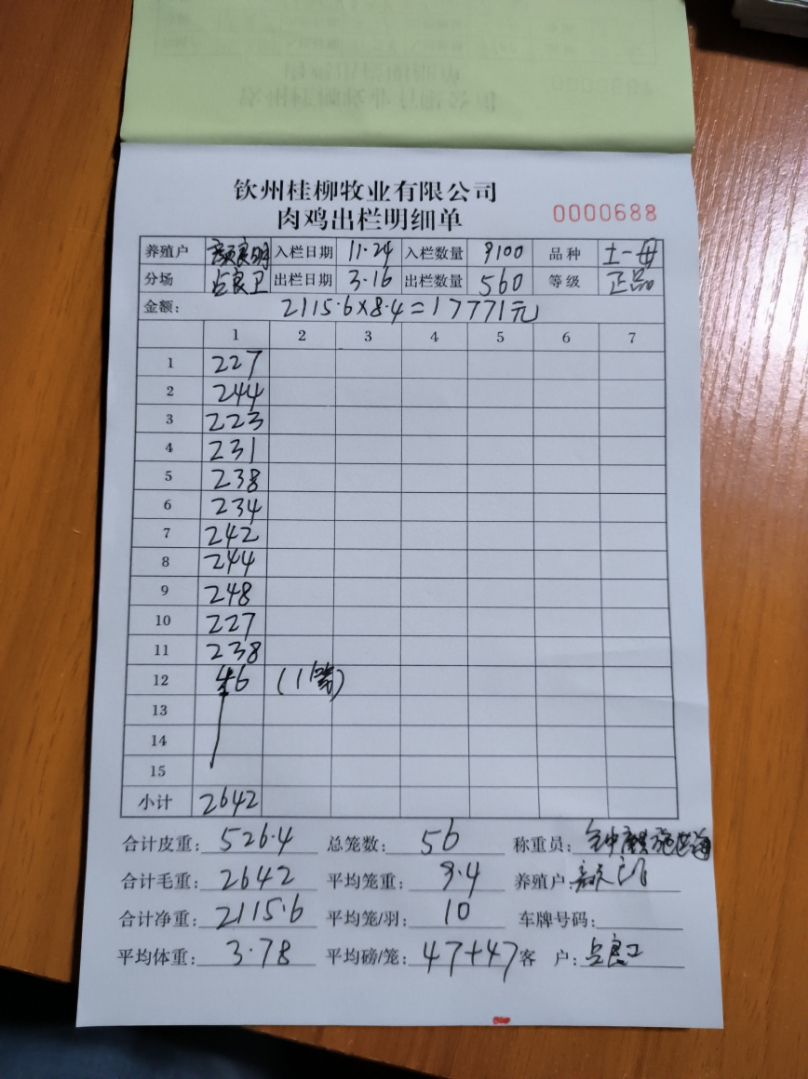 钦州桂柳牧业有限公司
肉鸡出栏明细单
0000688
养殖户 颜良明 入栏日期 11.24 入栏数量 9100 品种 土一母
分场 占良卫 出栏日期 3.16 出栏数量 560 等级 正品
金额: 2115.6×8.4=17771元
1 2 3 4 5 6 7
1 227
2 244
3 223
4 231
5 238
6 234
7 242
8 244
9 248
10 227
11 238
12 46 (1笼)
13
14
15
小计 2642
合计皮重: 526.4 总笼数: 56 称重员:
合计毛重: 2642 平均笼重: 9.4 养殖户:
合计净重: 2115.6 平均笼/羽: 10 车牌号码:
平均体重: 3.78 平均磅/笼: 47+47 客 户: 占良卫